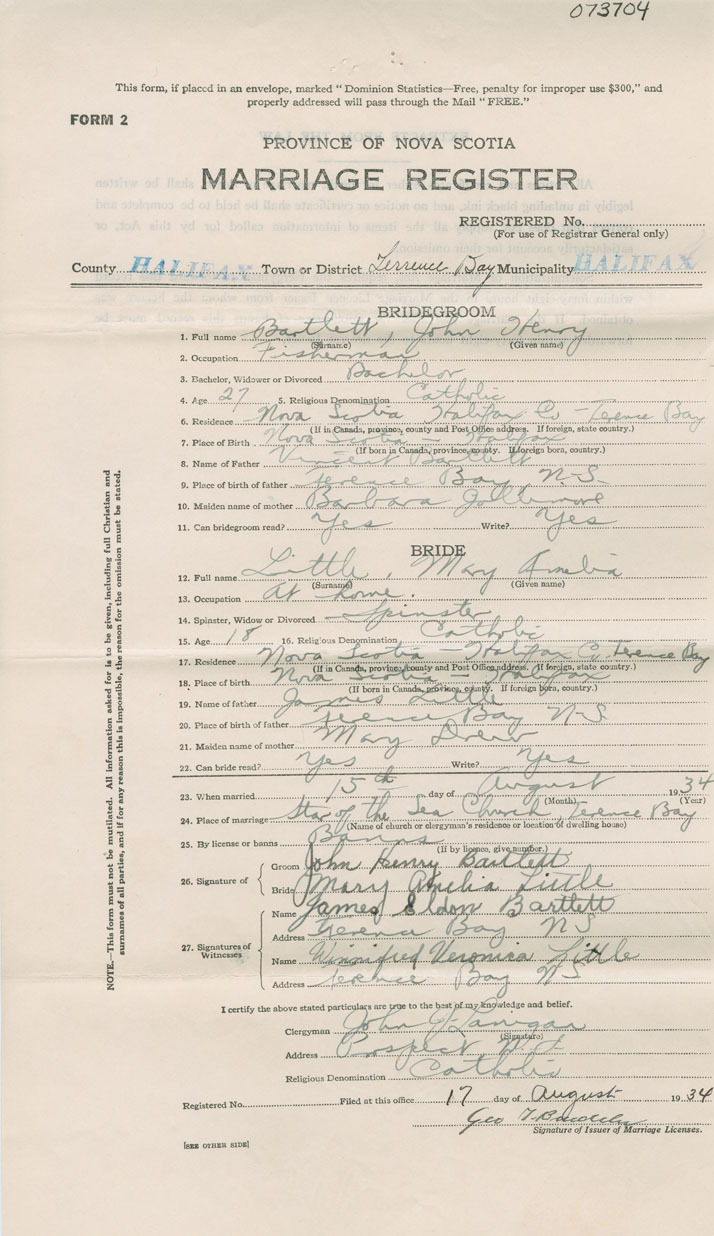 073704
This form, if placed in an envelope, marked "Dominion Statistics—Free, penalty for improper use $300," and
properly addressed will pass through the Mail "FREE."
FORM 2
PROVINCE OF NOVA SCOTIA
MARRIAGE REGISTER
REGISTERED No.
(For use of Registrar General only)
County HALIFAX Town or District Terrence Bay Municipality HALIFAX
BRIDEGROOM
1. Full name Bartlett, John Henry
(Surname) (Given name)
2. Occupation Fisherman
3. Bachelor, Widower or Divorced Bachelor
4. Age 27 5. Religious Denomination Catholic
6. Residence Nova Scotia Halifax Co - Terence Bay
(If in Canada, province, county and Post Office address. If foreign, state country.)
7. Place of Birth Nova Scotia - Halifax
(If born in Canada, province, county. If foreign born, country.)
8. Name of Father Vincent Bartlett
9. Place of birth of father Terence Bay N-S.
10. Maiden name of mother Barbara Jollimore
11. Can bridegroom read? Yes Write? Yes
BRIDE
12. Full name Little, Mary Amelia
(Surname) (Given name)
13. Occupation At home.
14. Spinster, Widow or Divorced Spinster
15. Age 18 16. Religious Denomination Catholic
17. Residence Nova Scotia - Halifax C. Terence Bay
(If in Canada, province, county and Post Office address. If foreign, state country.)
18. Place of birth Nova Scotia - Halifax
(If born in Canada, province, county. If foreign born, country.)
19. Name of father James Little
20. Place of birth of father Terence Bay N-S.
21. Maiden name of mother Mary Drew
22. Can bride read? Yes Write? Yes
23. When married 15th day of August 1934
(Month) (Year)
24. Place of marriage Star of the Sea Church, Terence Bay
(Name of church or clergyman's residence or location of dwelling house)
25. By license or banns Banns
(If by licence, give number.)
26. Signature of
Groom John Henry Bartlett
Bride Mary Amelia Little
27. Signatures of Witnesses
Name James Eldon Bartlett
Address Terence Bay N S
Name Winnifred Veronica Little
Address Terence Bay N S
I certify the above stated particulars are true to the best of my knowledge and belief.
Clergyman John J Lanigan
(Signature)
Address Prospect
Religious Denomination Catholic
Registered No. Filed at this office 17 day of August 1934
Geo T.
Signature of Issuer of Marriage Licenses.
[SEE OTHER SIDE]
NOTE.—This form must not be mutilated. All information asked for is to be given, including full Christian and
surnames of all parties, and if for any reason this is impossible, the reason for the omission must be stated.